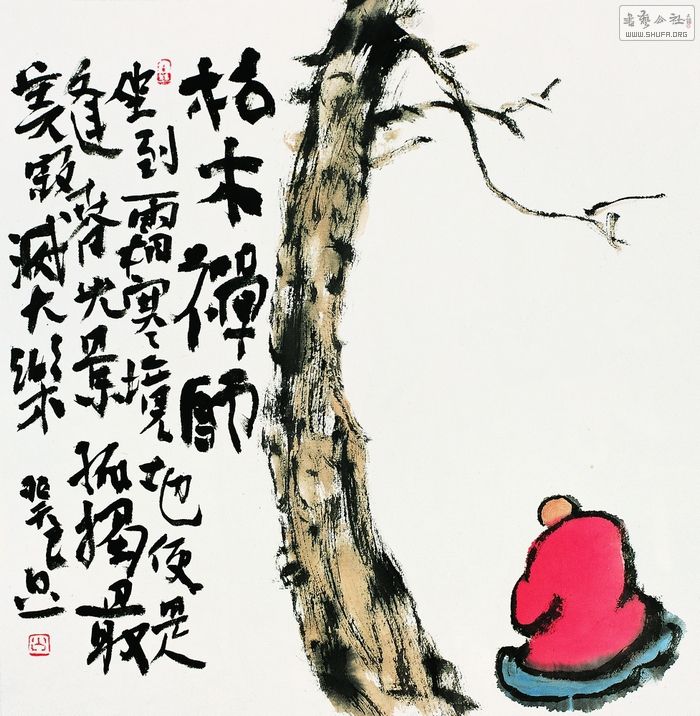 枯木禪師
坐到霜寒境地便是
逢春光景孤獨最
美寂滅大樂
癸巳
書藝公社
WWW.SHUFA.ORG